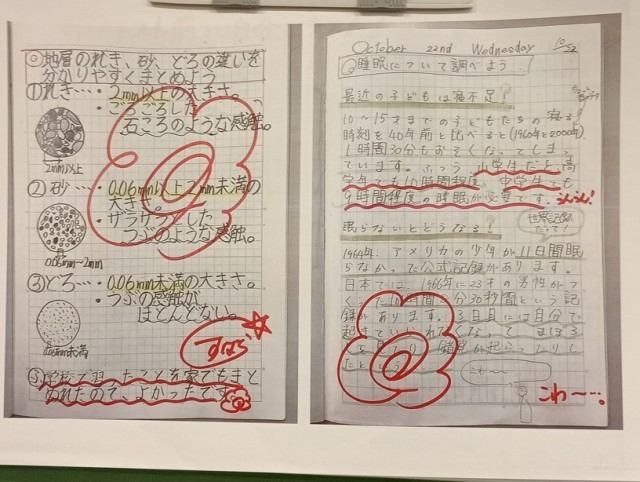 ◎地層のれき、砂、どろの違いを
分かりやすくまとめよう
①れき…・2mm以上の大きさ。
・ごろごろした
石ころのような感触。
2mm以上
②砂…・0.06mm以上2mm未満の
大きさ。
・ザラザラした
つぶのような感触。
0.06mm〜2mm
③どろ…・0.06mm未満の大きさ。
・つぶの感触が
ほとんどない。
0.06mm未満
すばら
学校で習ったことを家でもまと
められたので、よかったです。
October 22nd Wednesday 10/22
睡眠について調べよう!
最近の子どもは寝不足?
10〜15才までの子どもたちの寝る
時刻を40年前と比べると(1960年と2000年)
1時間30分もおそくなってしまっ
ています。ふつう小学生だと高
学年でも10時間程度、中学生でも
9時間程度の睡眠が必要です。
眠らないとどうなる?
世界記録
だって!
1964年、アメリカの少年が11日間眠
らなかった公式記録があります。
日本では、1966年に23才の男性がつ
くった
時間
分30秒間という記
録があります。3日目には自分で
起きていられなくなって
錯覚が起こったりし
たそう
こわ〜
こわ〜…。